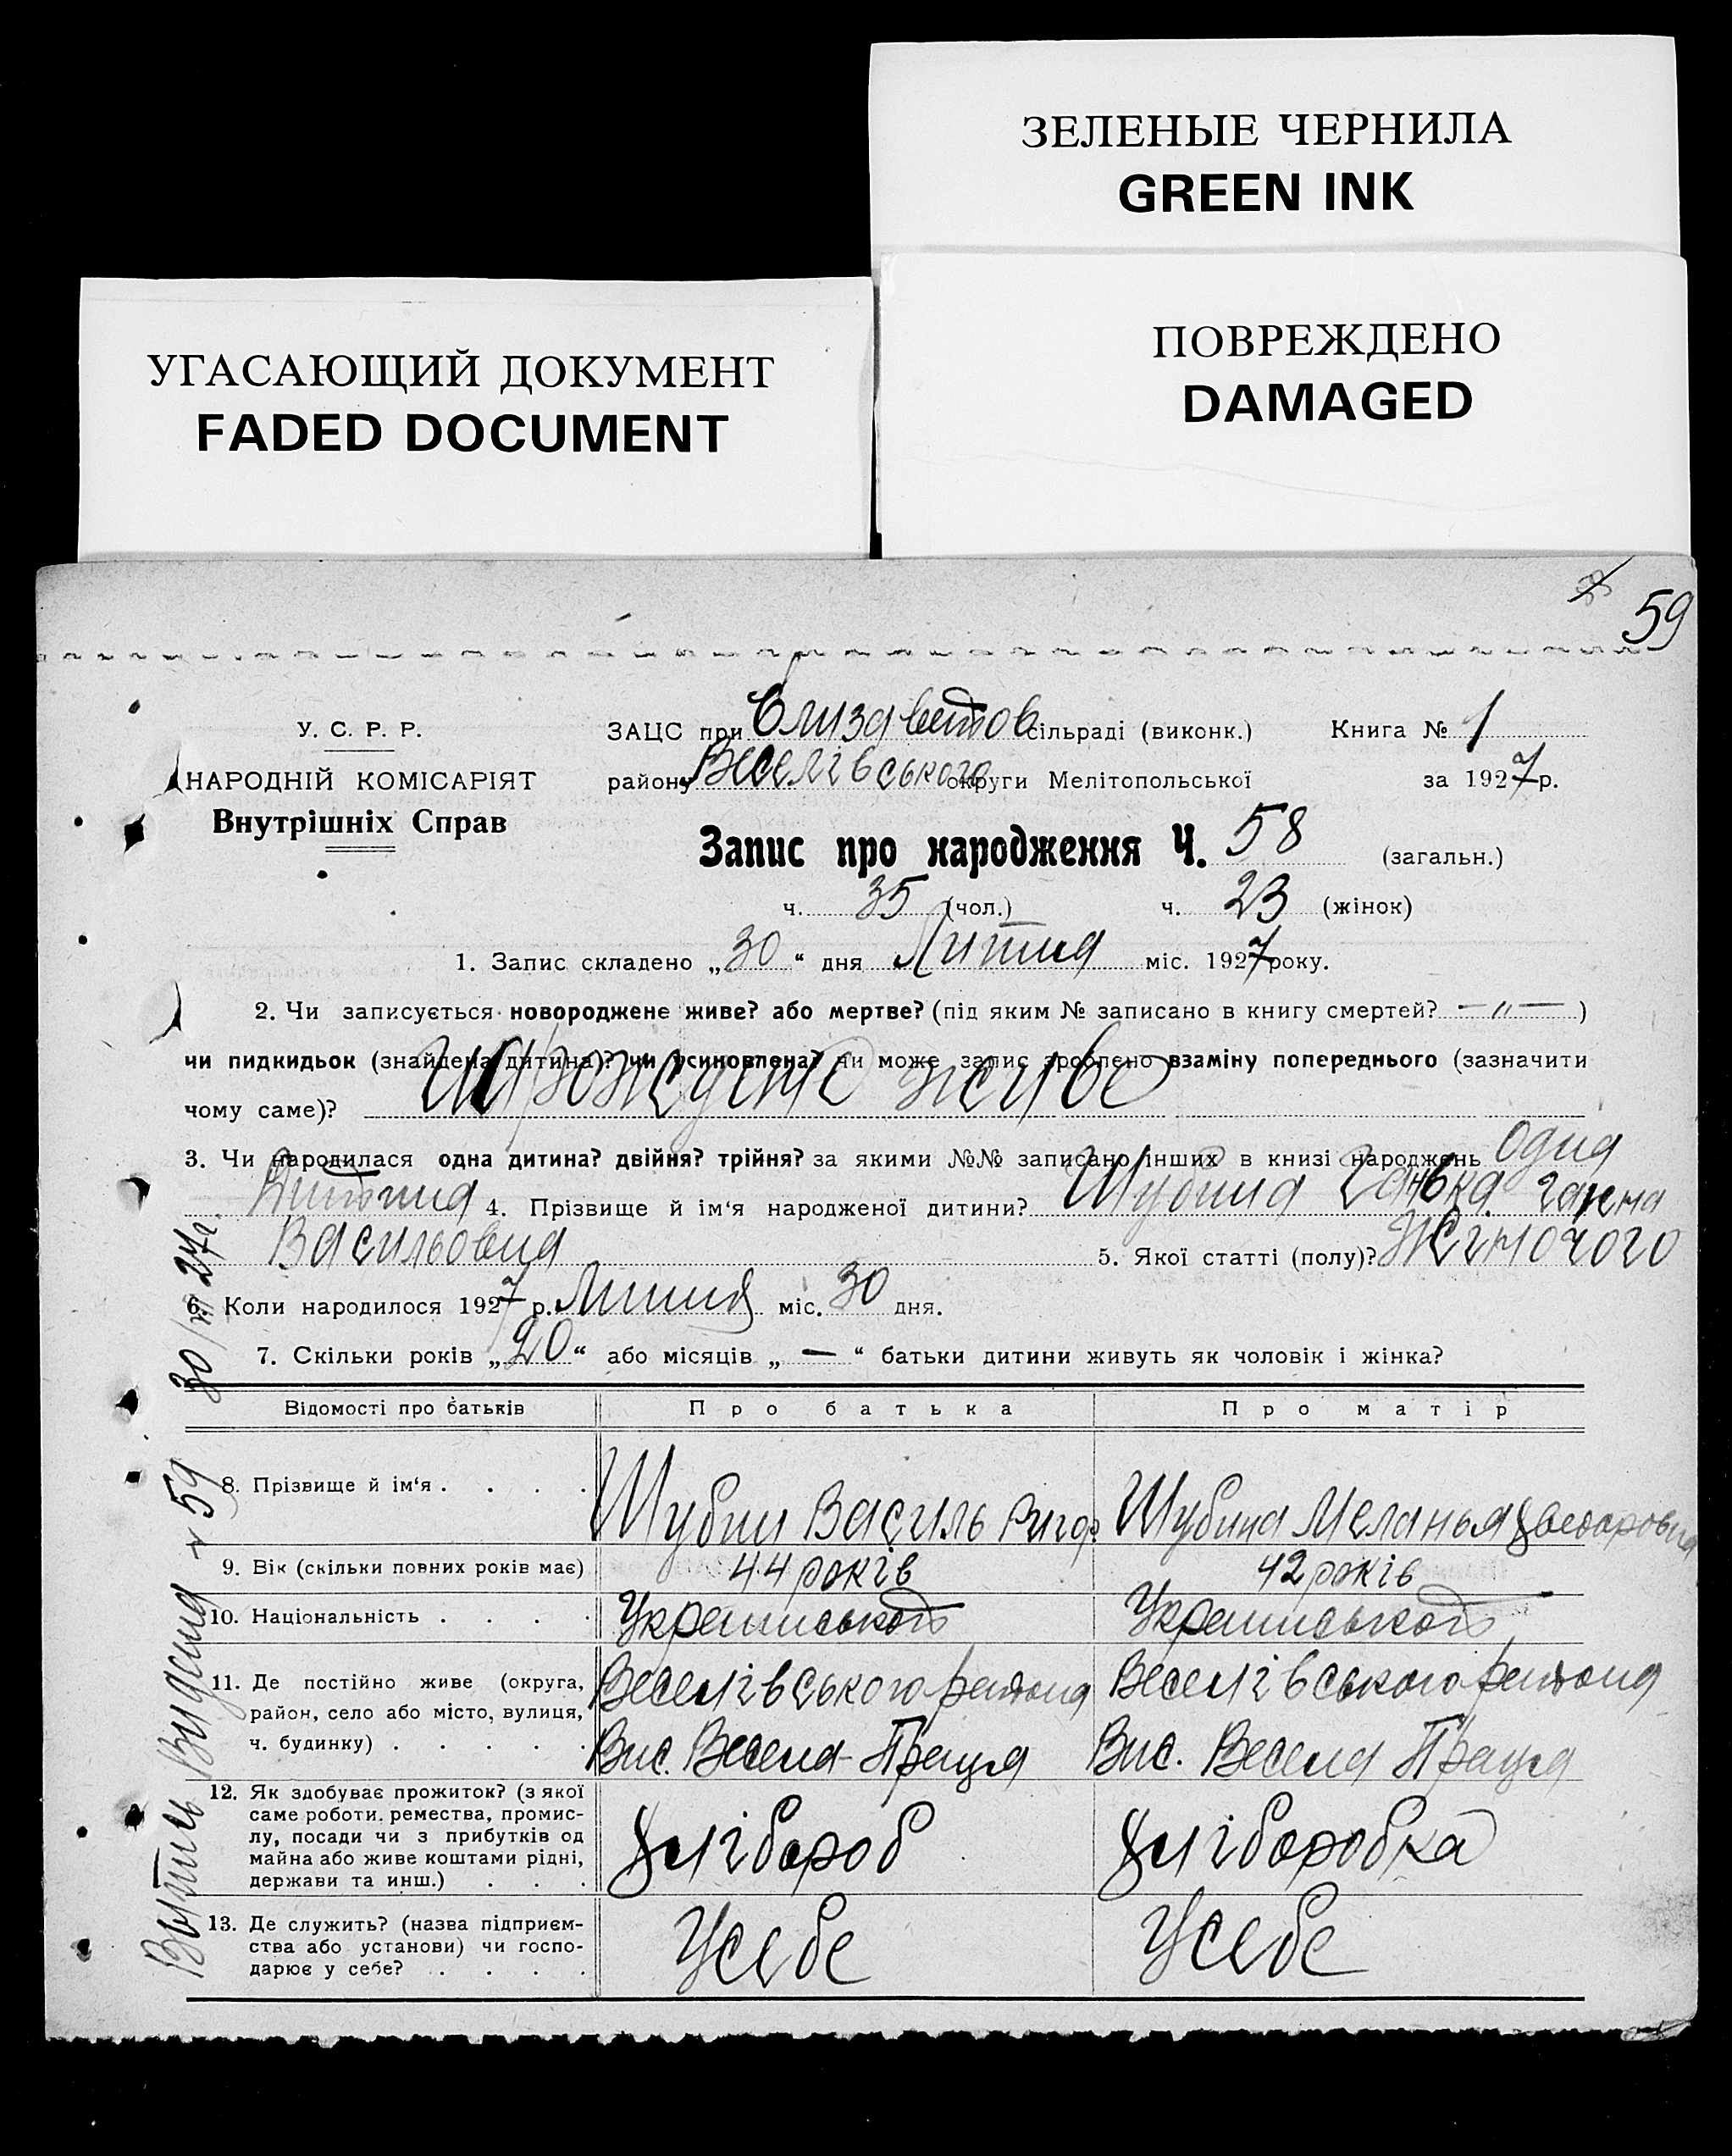 ЗЕЛЕНЫЕ ЧЕРНИЛА
GREEN INK
ПОВРЕЖДЕНО
DAMAGED
УГАСАЮЩИЙ ДОКУМЕНТ
FADED DOCUMENT
59
У. С. Р. Р.
НАРОДНІЙ КОМІСАРІЯТ
Внутрішніх Справ
ЗАЦС при Єлизаветов сільраді (виконк.) Книга № 1
району Веселівського округи Мелітопольської за 1927 р.
Запис про народження Ч. 58 (загальн.)
ч. 35 (чол.) ч. 23 (жінок)
1. Запис складено „30“ дня Липня міс. 1927 року.
2. Чи записується новороджене живе? або мертве? (під яким № записано в книгу смертей? — „ — )
чи пидкидьок (знайдена дитина)? чи усиновлена? чи може запис зроблено взаміну попереднього (зазначити
чому саме)? живе
3. Чи народилася одна дитина? двійня? трійня? за якими №№ записано інших в книзі народжень одна
дитина 4. Прізвище й ім‘я народженої дитини? Шубина Ганька Ганна
Васильовна 5. Якої статті (полу)? Жіночого
6. Коли народилося 1927 р. Липня міс. 30 дня.
7. Скільки років „20“ або місяців „ — “ батьки дитини живуть як чоловік і жінка?
Відомості про батьків Про батька Про матір
8. Прізвище й ім‘я . . . . Шубин Василь Шубина Меланья
9. Вік (скільки повних років має) 44 років 42 років
10. Національність . . . .
11. Де постійно живе (округа, Веселівського района Веселівського района
район, село або місто, вулиця,
ч. будинку) . . . . . Вис. Весела-Праця Вис. Весела Праця
12. Як здобуває прожиток? (з якої
саме роботи, ремества, промис-
лу, посади чи з прибутків од
майна або живе коштами рідні,
держави та инш.) . . . Хлібороб Хліборобка
13. Де служить? (назва підприєм-
ства або установи) чи госпо-
дарює у себе? . . . . Усебе Усебе
59 30/VII 27 г.